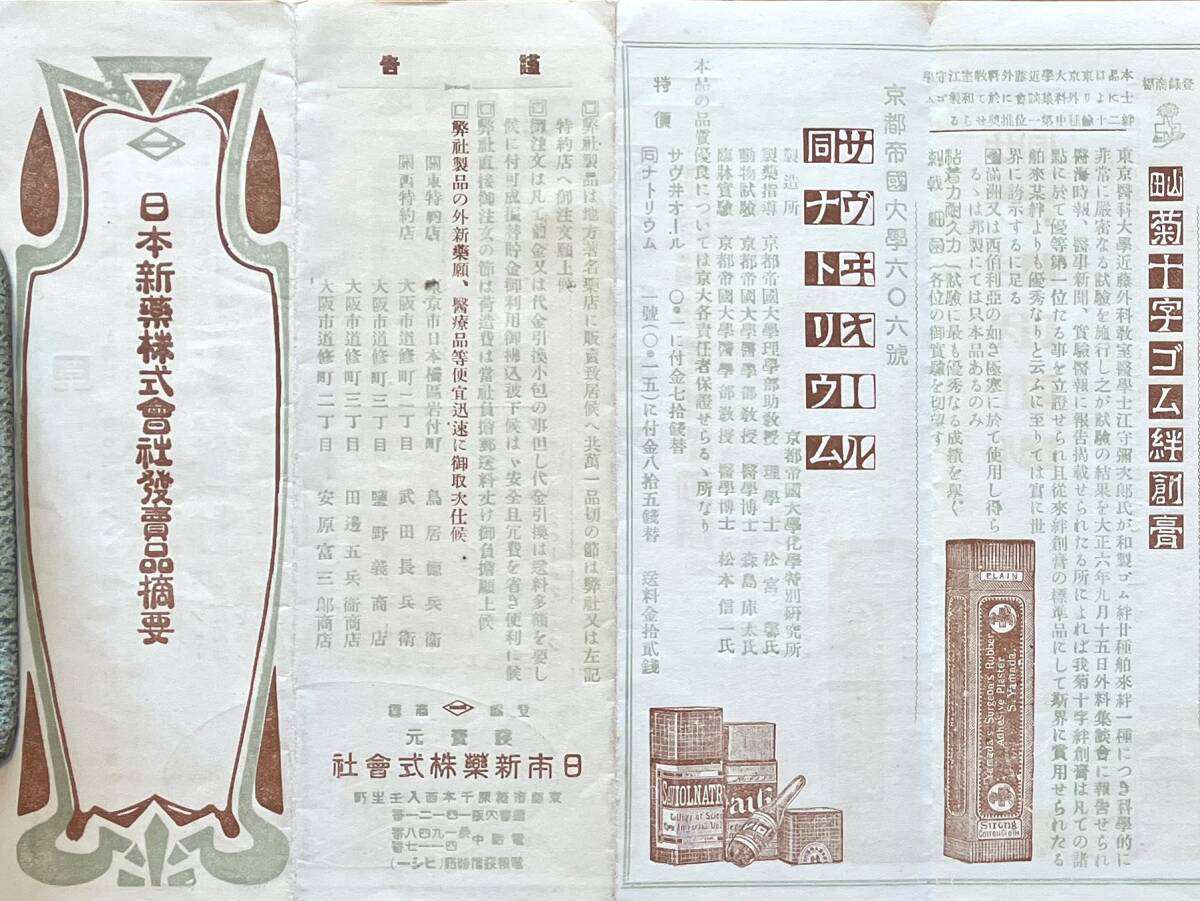 登錄商標
山田
菊十字ゴム絆創膏
東京醫科大學近藤外科教室醫學士江守彌次郎氏が和製ゴム絆廿種舶來絆一種につき科學的に
非常に嚴密なる試驗を施行し之が試驗の結果を大正六年九月十五日外科集談會に報告せられ
醫海時報、醫事新聞、實驗醫報に報告揭載せられたる所によれば我菊十字絆創膏は凡ての諸
點に於て優等第一位たる事を立證せられ且從來絆創膏の標準品にして斯界に賞用せられたる
舶來某絆よりも優秀なりと云ふに至りては實に世
界に誇示するに足る
滿洲又は西伯利亞の如き極寒に於て使用し得ら
るゝは邦製にては只本品あるのみ
粘着力耐久力
試驗に最も優秀なる成績を與ぐ
各位の御實驗を切望す
PLAIN
Yamada's Surgeon's Rubber
Adhesive Plaster
S. Yamada.
Strong
京都帝國大學六〇六號
サヴヰオール
同ナトリウム
製造所 京都帝國大學化學特別硏究所
製藥指導 京都帝國大學理學部助敎授 理學士 松宮馨氏
動物試驗 京都帝國大學醫學部敎授 醫學博士 森島庫太氏
臨牀實驗 京都帝國大學醫學部敎授 醫學博士 松本信一氏
本品の品質優良については京大各責任者保證せらるゝ所なり
特價
サヴヰオール 〇.一に付金七拾錢替
同ナトリウム 一號(〇.一五)に付金八拾五錢替 送料金拾貳錢
謹告
弊社製品は地方著名藥店に販賣致居候へ共萬一品切の節は弊社又は左記
特約店へ御注文願上候
御注文は凡て前金又は代金引換小包の事但し代金引換は送料多額を要し
候に付可成振替貯金御利用御拂込被下候はゞ安全且冗費を省き便利に候
弊社直接御注文の節は荷造費は當社負擔郵送料丈け御負擔願上候
弊社製品の外新藥願、醫療品等便宜迅速に御取次仕候
關東特約店 東京市日本橋區岩付町 鳥居德兵衞
關西特約店 大阪市道修町二丁目 武田長兵衞
大阪市道修町三丁目 鹽野義商店
大阪市道修町三丁目 田邊五兵衞商店
大阪市道修町二丁目 安原富三郎商店
登錄商標
發賣元
日本新藥株式會社
日本新藥株式會社發賣品摘要